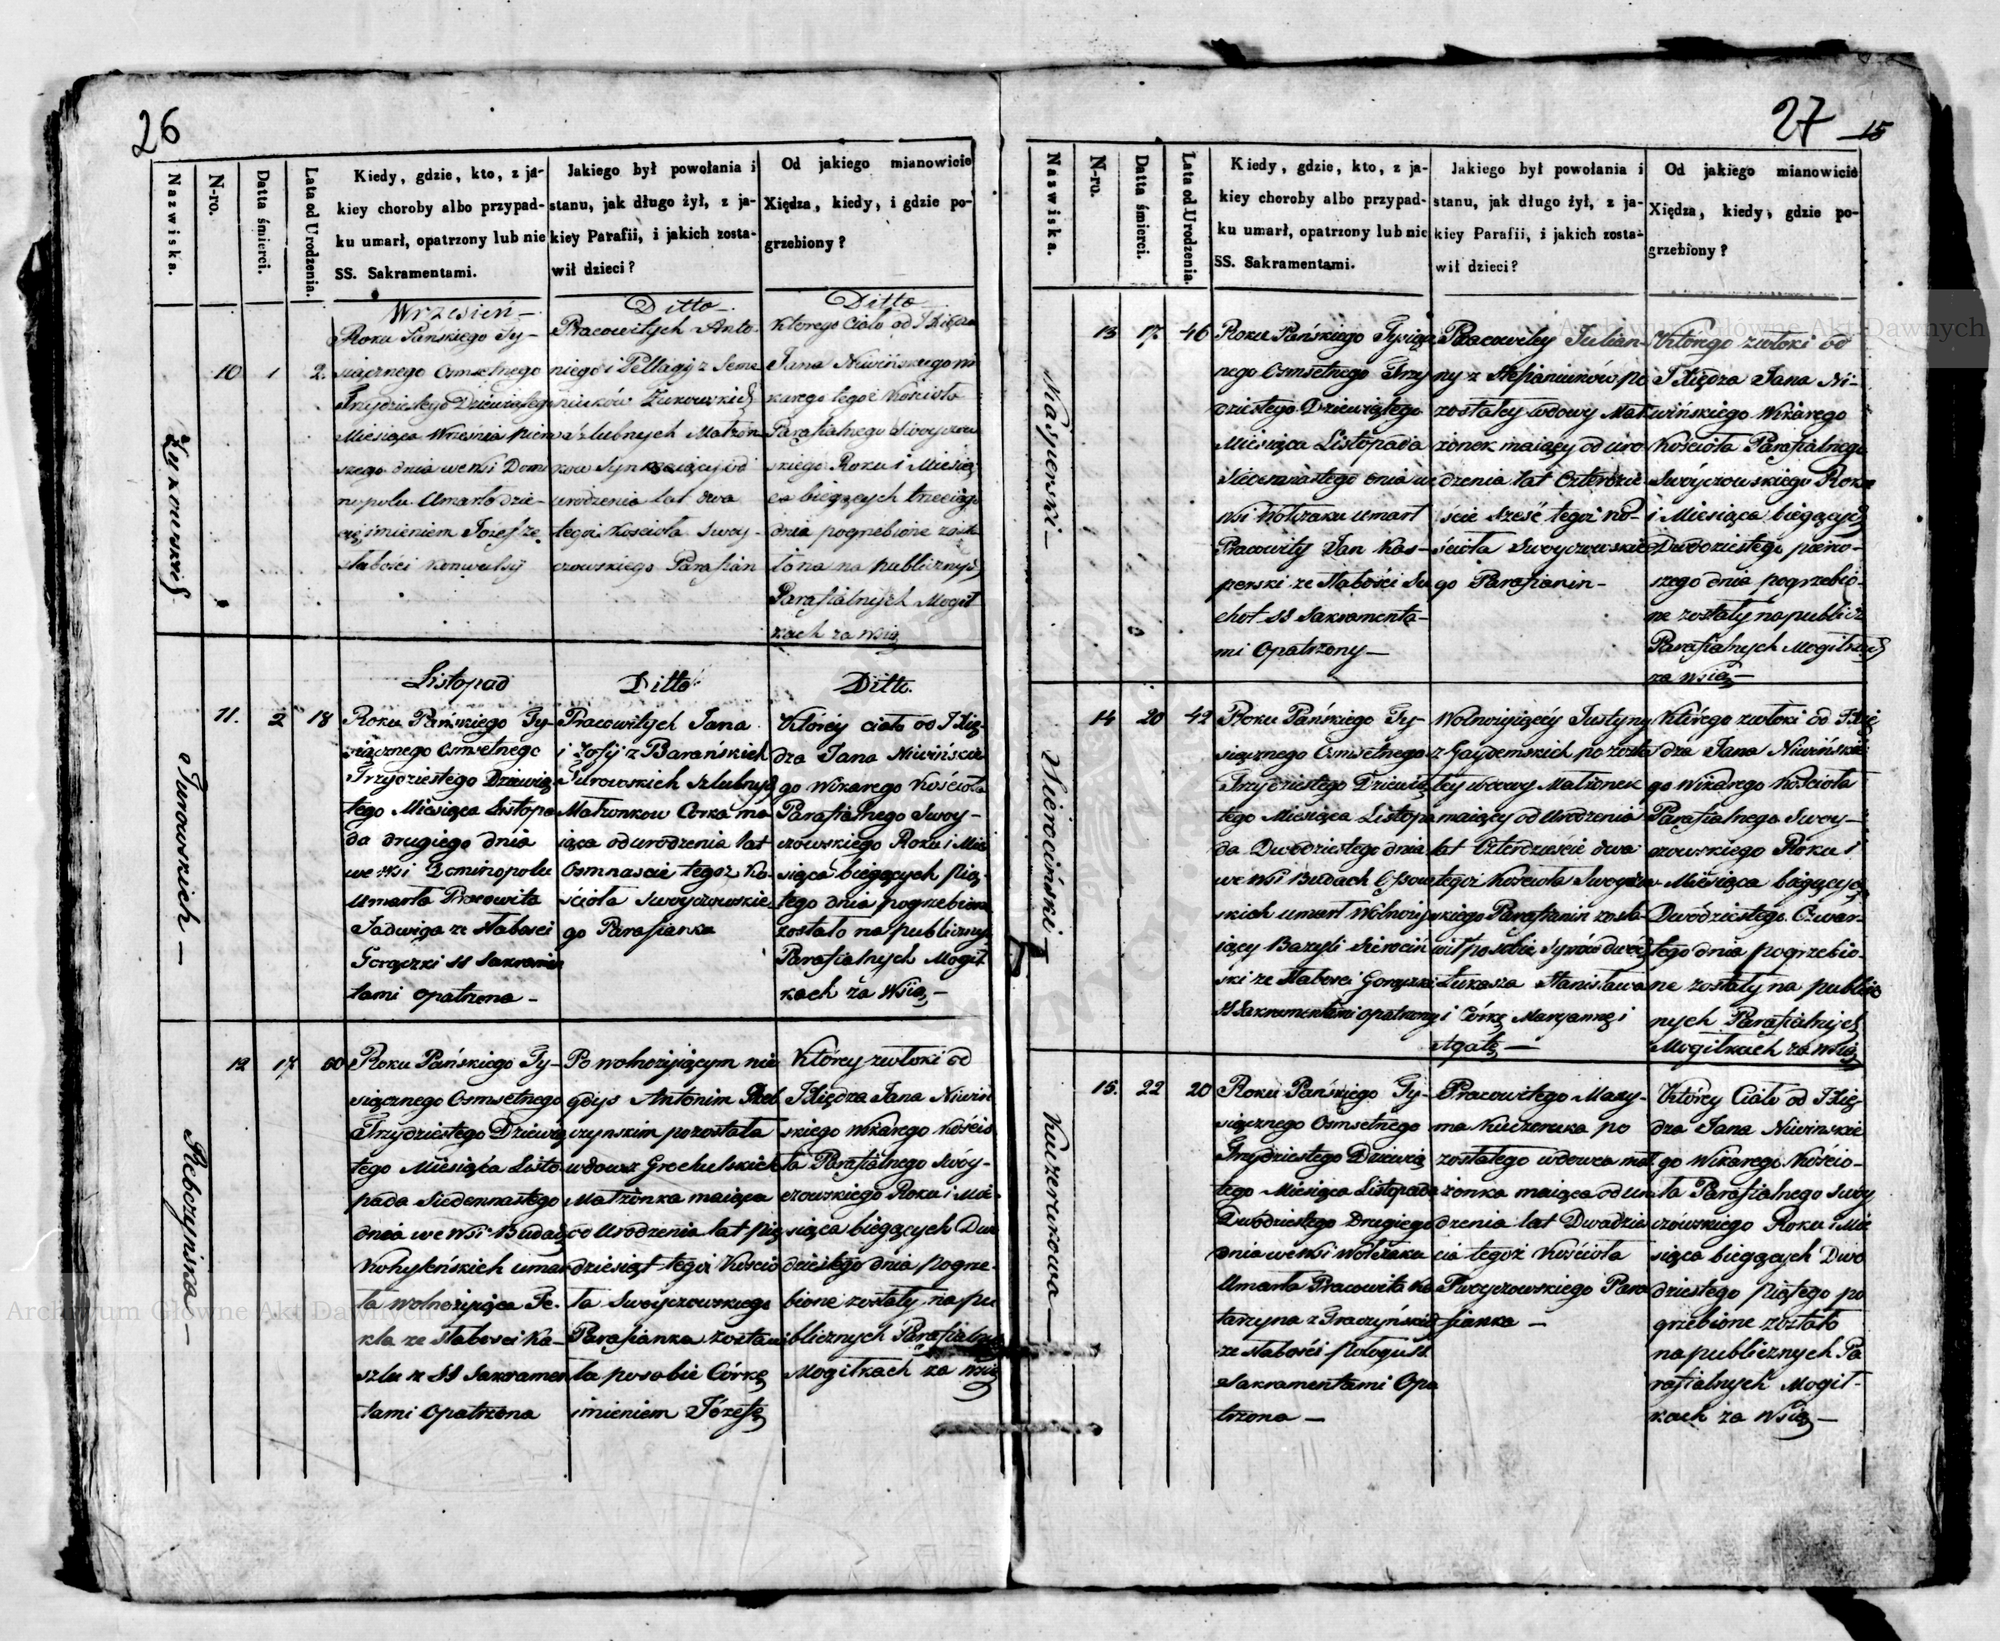 26
Nazwiska.
N-ro.
Datta śmierci.
Lata od Urodzenia.
Kiedy, gdzie, kto, z ja-
kiey choroby albo przypad-
ku umarł, opatrzony lub nie
SS. Sakramentami.
Jakiego był powołania i
stanu, jak długo żył, z ja-
kiey Parafii, i jakich zosta-
wił dzieci?
Od jakiego mianowicie
Xiędza, kiedy, i gdzie po-
grzebiony?
Żukowskich
10
1
2.
Wrzesień
Roku Pańskiego Ty-
siącznego Osmsetnego
Trzydziestego Dziewiątego
Miesiąca Września pierw
szego dnia we wsi Domi
nopolu Umarło dzie-
cię imieniem Józef ze
słabości konwulsij
Ditto
Pracowitych Anto
niego i Pellagij z Seme
niuków Żukowskich
Szlubnych Małżon
kow Syn maiący od
urodzenia lat dwa
tegoż Kościoła Swoy-
czowskiego Parafian
Ditto
Którego Ciało od JXiędza
Jana Niwińskiego Wi
karego tegoż Kościoła
Parafialnego Swoyczow
skiego Roku i Miesią
ca biegących trzeciego
dnia pogrzebione zosta
ło na na publicznych
Parafialnych Mogił
kach za Wsią
Turowskich —
11.
2
18
Listopad
Roku Pańskiego Ty-
siącznego Osmsetnego
Trzydziestego Dziewią-
tego Miesiąca Listopa
da drugiego dnia
we wsi Dominopolu
Umarła Pracowita
Jadwiga ze słabosci
Gorączki SS Sakramen
tami opatrzona —
Ditto
Pracowitych Jana
i Zofij z Barańskich
Turowskich Szlubnych
Małżonkow Corka ma
iąca od urodzenia lat
Osmnascie tegoż Ko
ścioła Swoyczowskie
go Parafianka
Ditto.
Którey ciało od JXię
dza Jana Niwińskie
go Wikarego Kościoła
Parafialnego Swoy-
czowskiego Roku i Mie
siąca biegących Pią-
tego dnia pogrzebione
zostało na publicznych
Parafialnych Mogił
kach za Wsią —
Rebczyńska —
12
17
60
Roku Pańskiego Ty-
siącznego Osmsetnego
Trzydziestego Dziewią
tego Miesiąca Listo
pada Siedemnastego
dnia we Wsi Budach
Kohyleńskich umar
ła Wolnożyjąca Te-
kla ze słabosci Ka-
szlu z SS Sakramen
tami Opatrzona
Po wolnożyjącym nie
gdys Antonim Reb
czynskim pozostała
wdowa z Grochulskich
Małżonka maiąca
od Urodzenia lat pięć
dziesiąt tegoż Koscio
ła Swoyczowskiego
Parafianka zostawi
ła po sobie Córkę
imieniem Józefę
Którey zwłoki od
JXiędza Jana Niwiń
skiego Wikarego Kościo
ła Parafialnego Swóy-
czowskiego Roku i Mie-
siąca biegących Dwu
dziestego dnia pogrze-
bione zostały na pu
blicznych Parafialnych
Mogiłkach za Wsią
27
15
Naswiska.
N-ro.
Datta śmierci.
Lata od Urodzenia.
Kiedy, gdzie, kto, z ja-
kiey choroby albo przypad-
ku umarł, opatrzony lub nie
SS. Sakramentami.
Jakiego był powołania i
stanu, jak długo żył, z ja-
kiey Parafii, i jakich zosta-
wił dzieci?
Od jakiego mianowicie
Xiędza, kiedy, gdzie po-
grzebiony?
Kasperski —
13
17.
46
Roku Pańskiego Tysiącz
nego Osmsetnego Trzy
dziestego Dziewiątego
Miesiąca Listopada
Siedemnastego dnia we
Wsi Wolczaku umarł
Pracowity Jan Kas-
perski ze słabości Su
chot SS Sakramenta-
mi Opatrzony —
Pracowitey Julian-
ny z Stefaniuków po
zostałey wdowy Mał
żonek maiący od uro
dzenia lat Czterdzie
ście sześć tegoż Ko-
ścioła Swoyczowskie
go Parafianin —
Którego zwłoki od
JXiędza Jana Ni-
wińskiego Wikarego
Kościoła Parafialnego
Swóyczowskiego Roku
i Miesiąca biegących
Dwudziestego pierw-
szego dnia pogrzebio-
ne zostały na publicz
Parafialnych Mogiłkach
za Wsią —
Sierociński —
14
20
42
Roku Pańskiego Ty-
siącznego Osmsetnego
Trzydziestego Dziewią
tego Miesiąca Listopa
da Dwudziestego dnia
we Wsi Budach
skich umarł Wolnoży
iący Bazyli Sierociń
ski ze słabosci Gorączki
SS Sakramentami opatrzony
Wolnożyiącey Justyny
z Gaydemskich pozosta
łey wdowy Małżonek
maiący od Urodzenia
lat Czterdzieście dwa
tegoż Kościoła Swoyczow
skiego Parafianin zosta
wił po sobie Synów dwóch
Łukasza Stanisława
i Córkę Maryannę i
Agatę —
Którego zwłoki od JXię
dza Jana Niwińskie
go Wikarego Kościoła
Parafialnego Swoy-
czowskiego Roku i
Miesiąca biegących
Dwudziestego Czwar-
tego dnia pogrzebio-
ne zostały na public
nych Parafialnych
Mogiłkach za Wsią
Kuczerukowa —
15.
22
20
Roku Pańskiego Ty-
siącznego Osmsetnego
Trzydziestego Dziewią
tego Miesiąca Listopada
Dwudziestego Drugiego
dnia we Wsi Wolczaku
Umarła Pracowita Ka
tarzyna z Graczyńskich
ze słabości Połogu SS
Sakramentami Opa
trzona —
Pracowitego Maxy-
ma Kuczeruka po
zostałego wdowca mał
żonka maiąca od Uro
dzenia lat Dwadzie
cia tegoż Kościoła
Swoyczowskiego Para
fianka —
Którey Ciało od JXię
dza Jana Niwinskie
go Wikarego Koscio-
ła Parafialnego Swoy
czówskiego Roku i Mie
siąca biegących Dwu
dziestego piątego po
grzebione zostało
na publicznych Pa
rafialnych Mogił-
kach za Wsią —
Archiwum Główne Akt Dawnych
Archiwum Główne Akt Dawnych